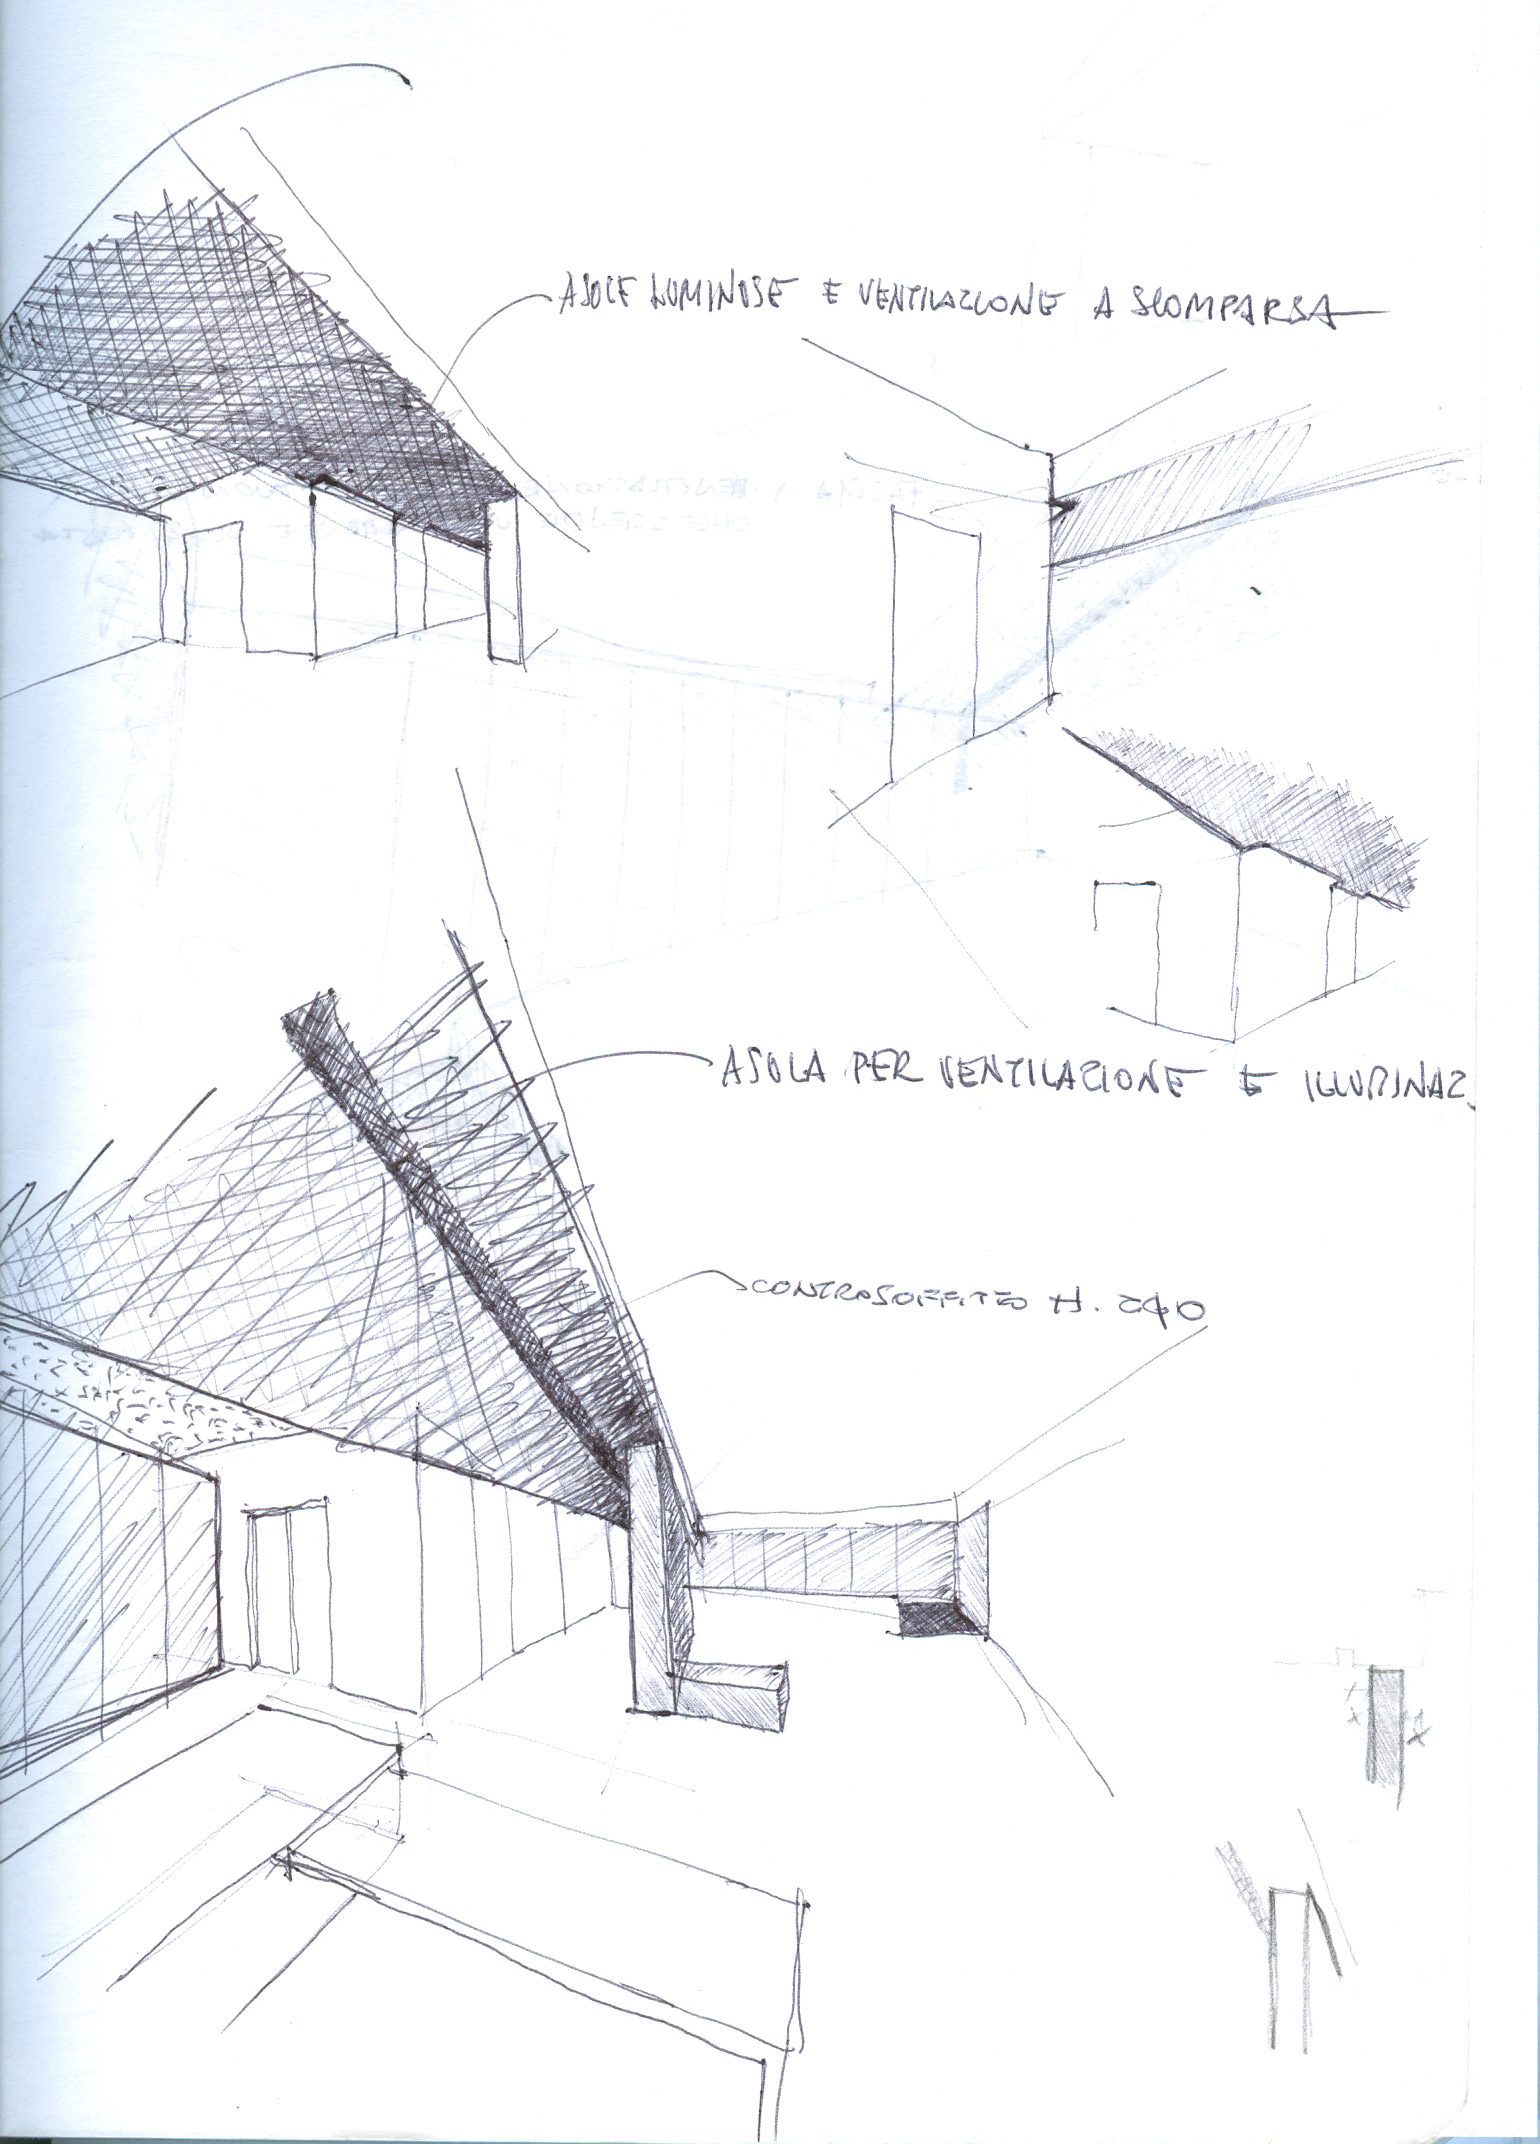 ASOLE LUMINOSE E VENTILAZIONE A SCOMPARSA
ASOLA PER VENTILAZIONE E ILLUMINAZ.
CONTROSOFFITTO H. 240